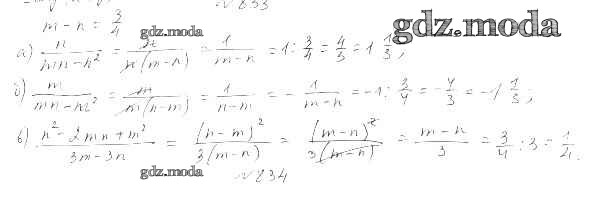 № 833
m-n = 3/4
gdz.moda
а) n/(mn-n²) = n/(n(m-n)) = 1/(m-n) = 1: 3/4 = 4/3 = 1 1/3;
gdz.moda
б) m/(mn-m²) = m/(m(n-m)) = 1/(n-m) = - 1/(m-n) = -1: 3/4 = -4/3 = -1 1/3;
в) (n²-2mn+m²)/(3m-3n) = (n-m)²/(3(m-n)) = (m-n)²/(3(m-n)) = (m-n)/3 = 3/4 : 3 = 1/4.
gdz.moda
№ 834